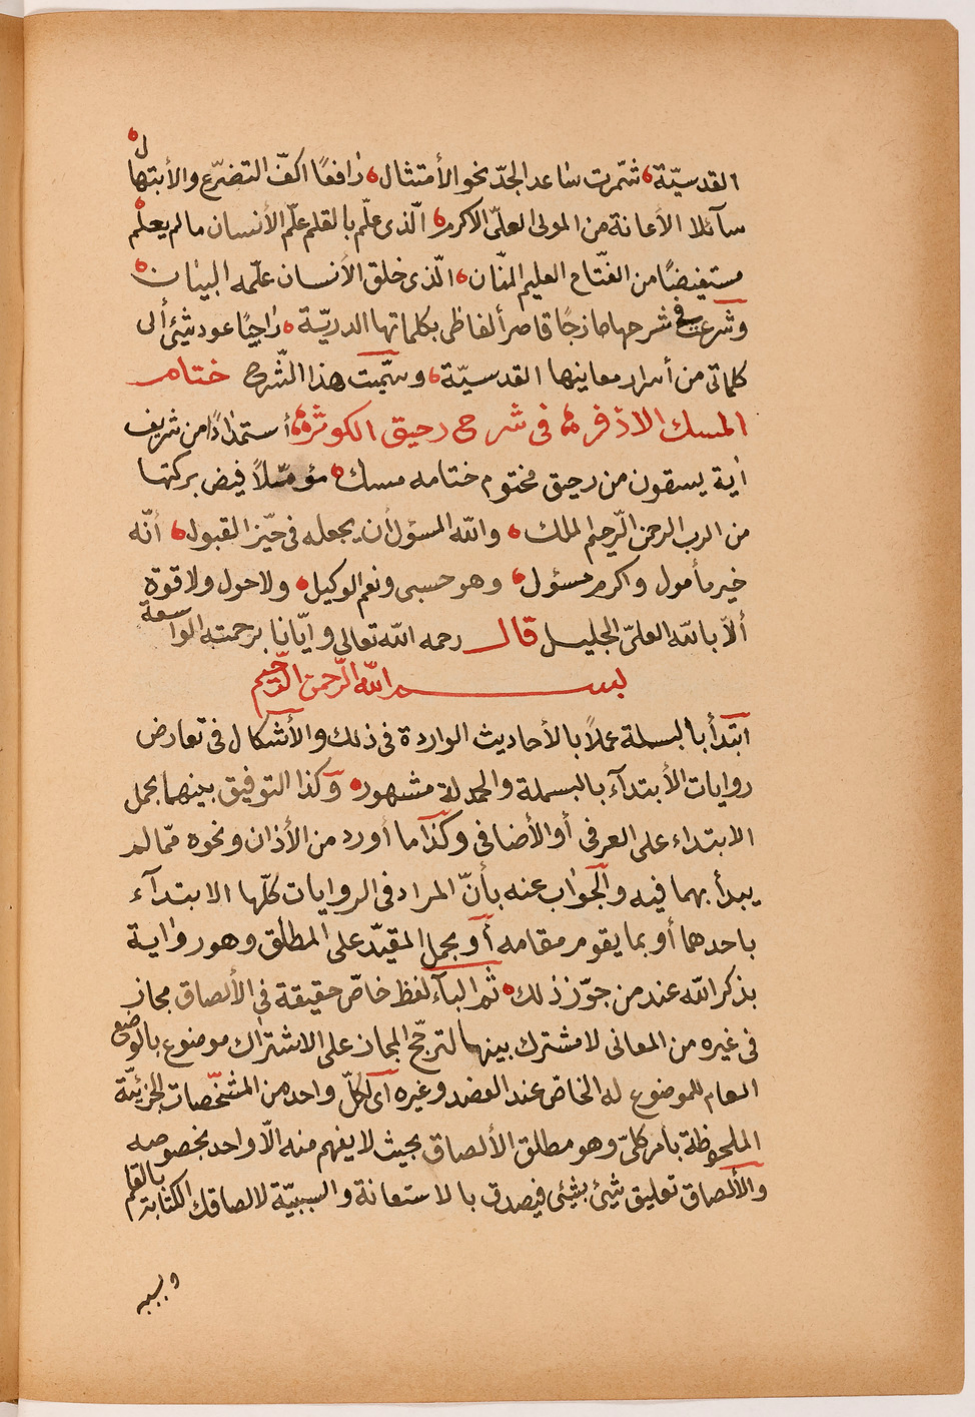 القدسيّة، شمّرت ساعد الجدّ نحو الأمتثال، رافعًا اكفّ التضرّع والأبتهال،
سآئلا الأعانة من المولى العلىّ الاكرم، الّذى علّم بالقلم علّم الأنسان مالم يعلم،
مستفيضًا من الفتّاح العليم المنّان، الّذى خلق الأنسان علّمه البيان،
وشرعت فى شرحها مازجًا قاصر ألفاظى بكلماتها الدريّة، راجيًا عود شئ ألى
كلماتى من أسرار معاينها القدسيّة، وسمّيت هذا الشّرح ختام
المسك الاذفر، فى شرح رحيق الكوثر، أستمدادًا من شريف
اية يسقون من رحيق مختوم ختامه مسك، مؤمّلاً فيض بركتها
من الرب الرحمن الرّحيم الملك، والله المسؤل أن يجعله فى حيّز القبول، أنّه
خير مأمول واكرم مسئول، وهو حسبى ونعم الوكيل، ولا حول ولا قوّة
ألاّ بالله العلىّ الجليل قال رحمه الله تعالى وايّانا برحمته الواسعة
بسم الله الرّحمن الرّحيم
ابتدأ بالبسملة عملاً بالأحاديث الواردة فى ذلك والأشكال فى تعارض
روايات الأبتدآء بالبسملة والحمدلة مشهور، وكذا التوفيق بينهما بحمل
الابتداء على العرفى أو الأضافى وكذا ما أورد من الأذان ونحوه ممّا لم
يبدأ بهما فيه والجواب عنه بأنّ المراد فى الروايات كلّها الابتدآء
باحدهما أو بما يقوم مقامه أو بحمل المقيّد على المطلق وهو رواية
بذكر الله عند من جوّز ذلك، ثم البآء لفظ خاصّ حقيقة فى الألصاق مجاز
فى غيره من المعانى لا مشترك بينها لترجّح المجاز على الاشتراك موضوع بالوضع
العام للموضوع له الخاصّ عند العضد وغيره اى لكلّ واحد من المشخّصات الجزئيّة
الملحوظة بأمر كلىّ وهو مطلق الألصاق بحيث لا يفهم منه الّا واحد بخصوصه
والألصاق تعليق شئ بشئ فيصدق بالاستعانة والسببيّة لالصاقك الكتابة بالقلم
وبسببه